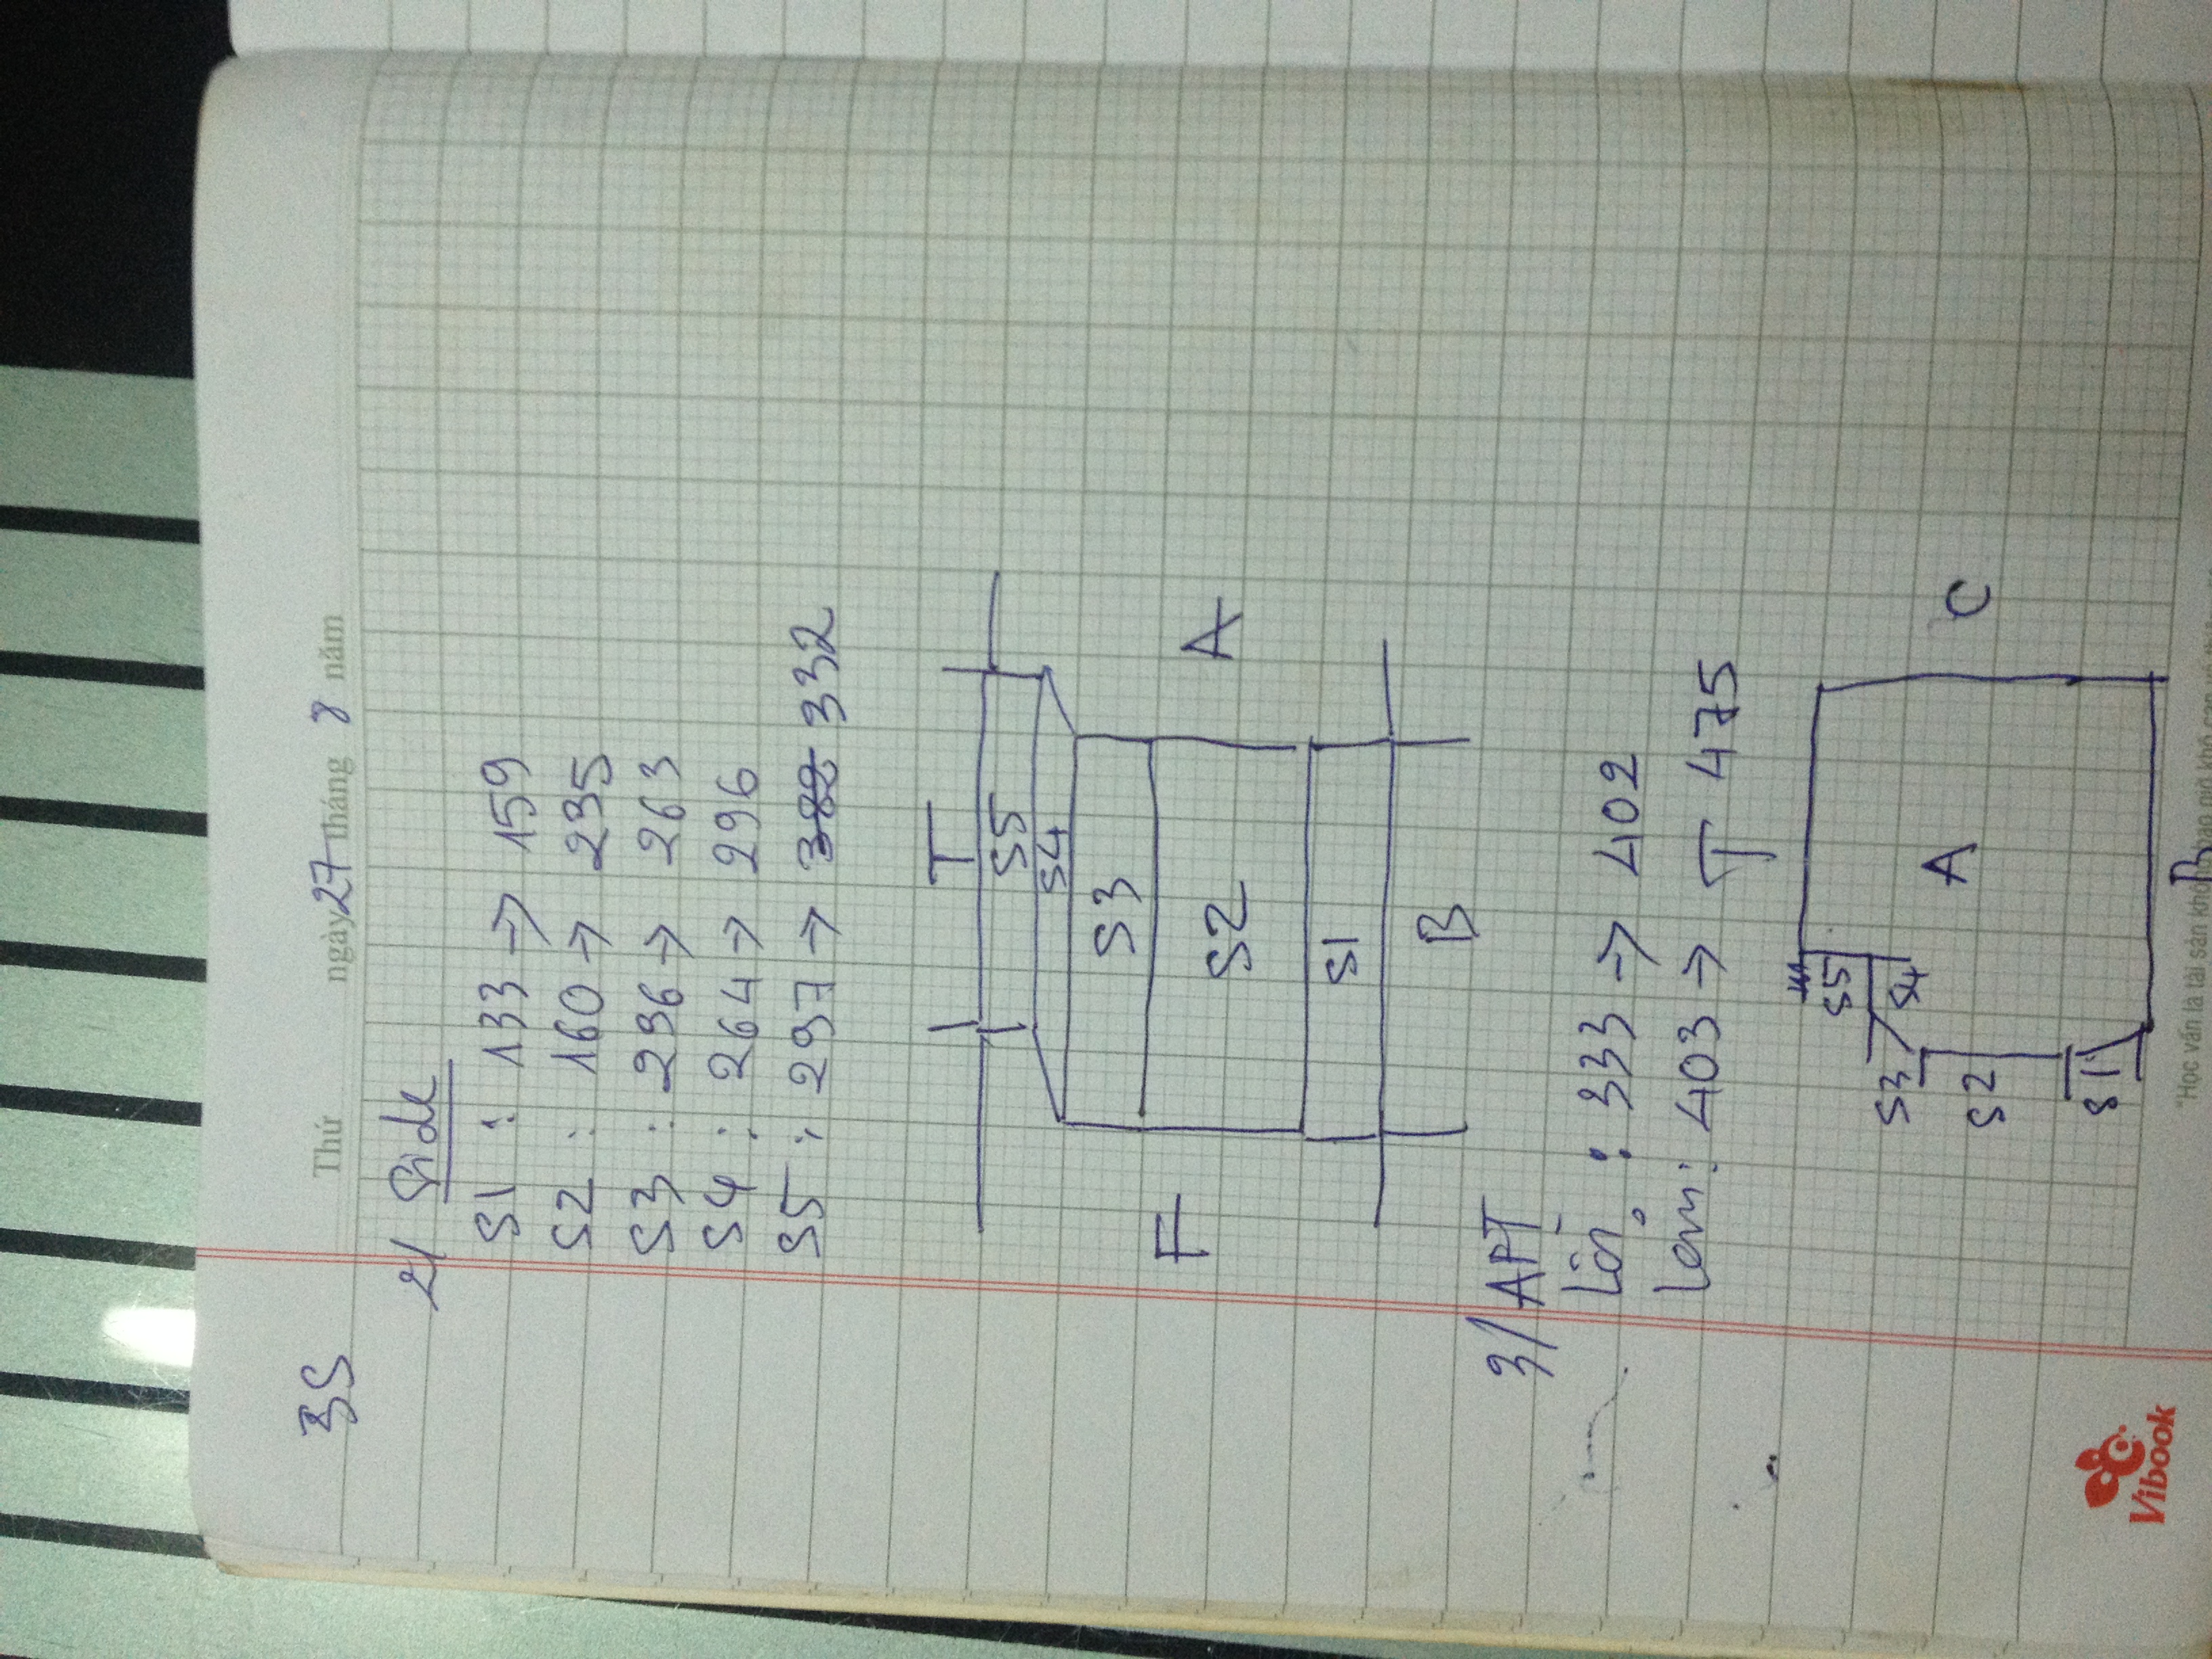 3S
Thứ ngày 27 tháng 8 năm
2/ Side
S1 : 133 → 159
S2 : 160 → 235
S3 : 236 → 263
S4 : 264 → 296
S5 : 297 → 382 332
T
S5
S4
S3
F
S2
A
S1
B
3/ AFT
Lồi : 333 → 402
Lõm : 403 → 475
T
S5
S3
S4
A
C
S2
S1
B
Vibook
"Học vấn là tài sản không bao giờ khô cạn